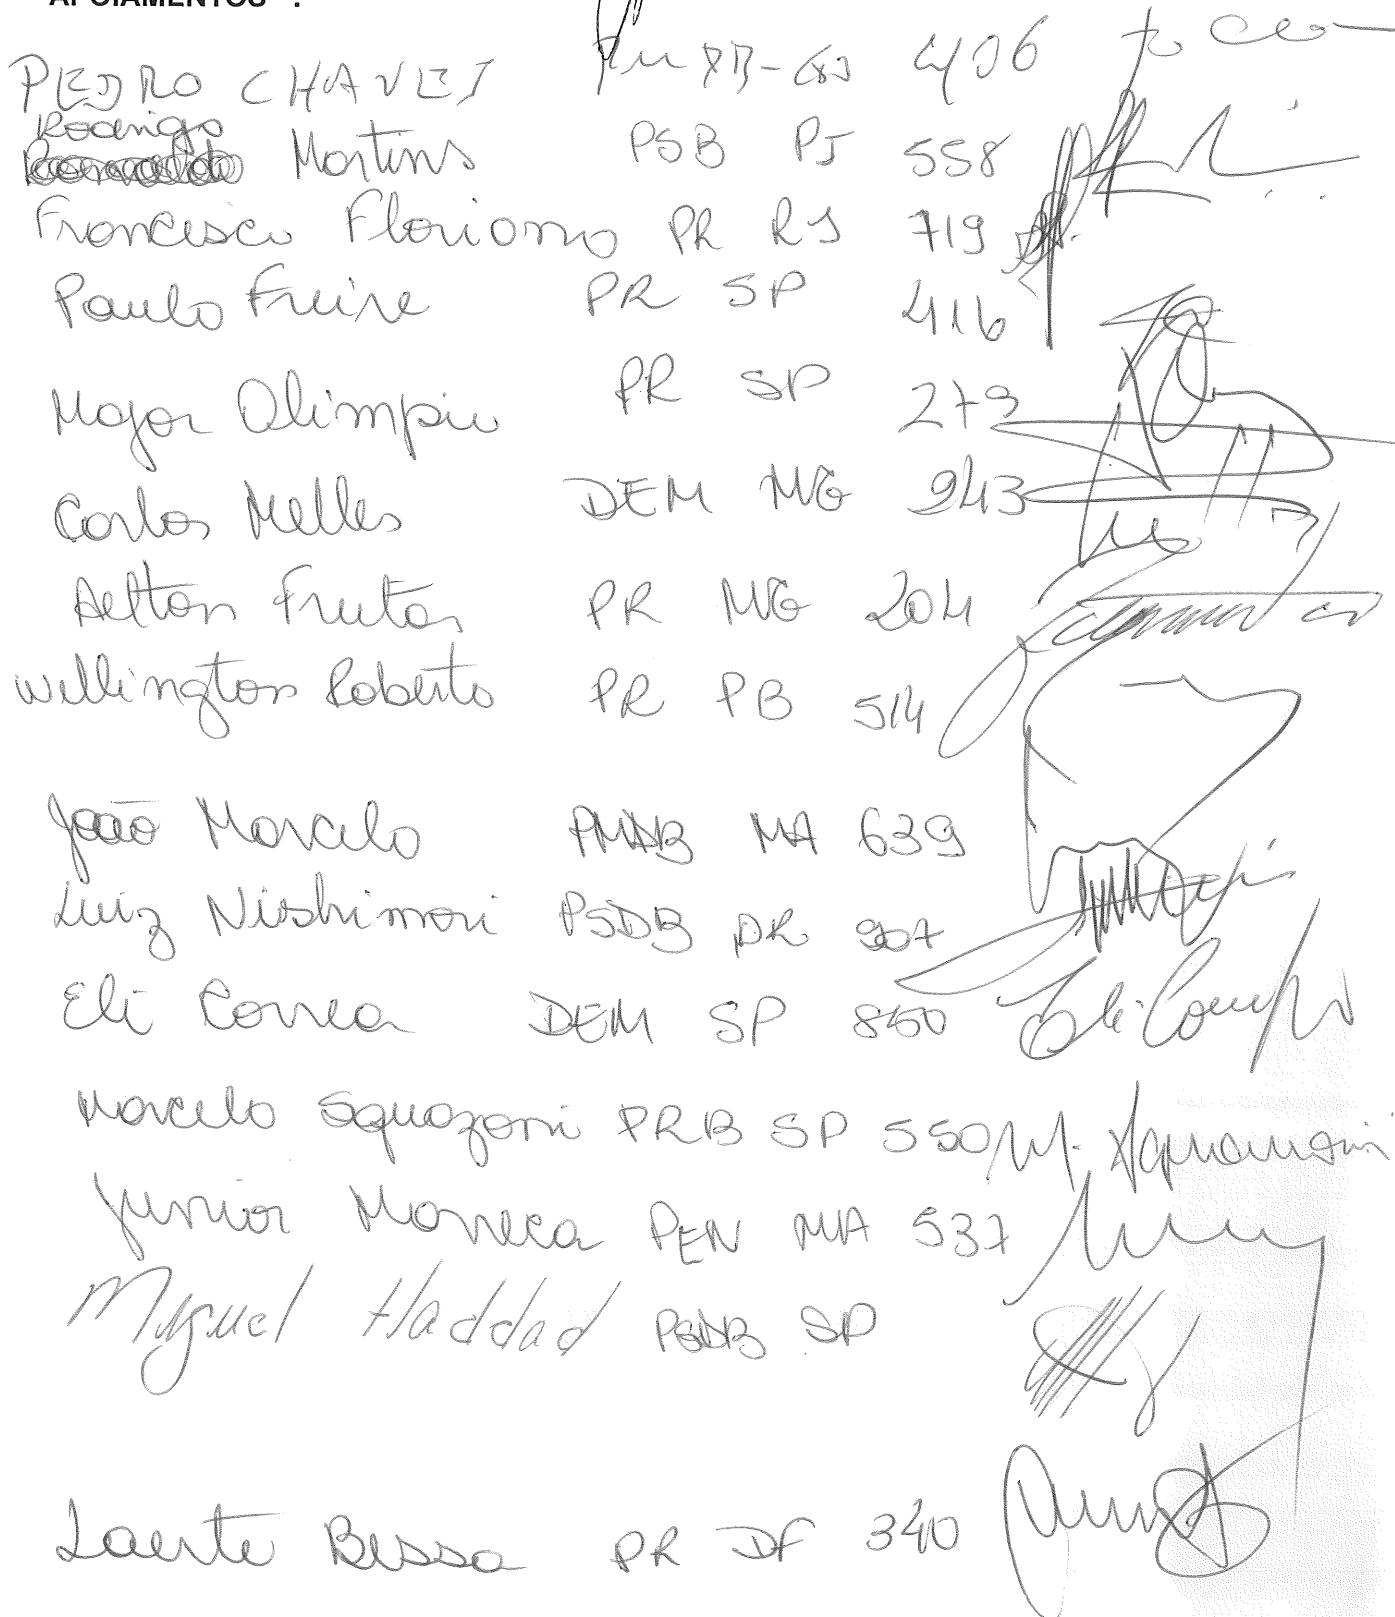 APOIAMENTOS :
PEDRO CHAVES 406
Rodrigo
Martins PSB PI 558
Francisco Floriano PR RJ 719
Paulo Freire PR SP 416
Major Olimpio PR SP 279
Carlos Melles DEM MG 243
Aelton Freitas PR MG 204
Wellington Roberto PR PB 514
João Marcelo PMDB MA 639
Luiz Nishimori PSDB PR 907
Eli Correa DEM SP 850
Marcelo Squazoni PRB SP 550
Junior Marreca PEN MA 537
Miguel Haddad PSDB SP
Laerte Bessa PR DF 340